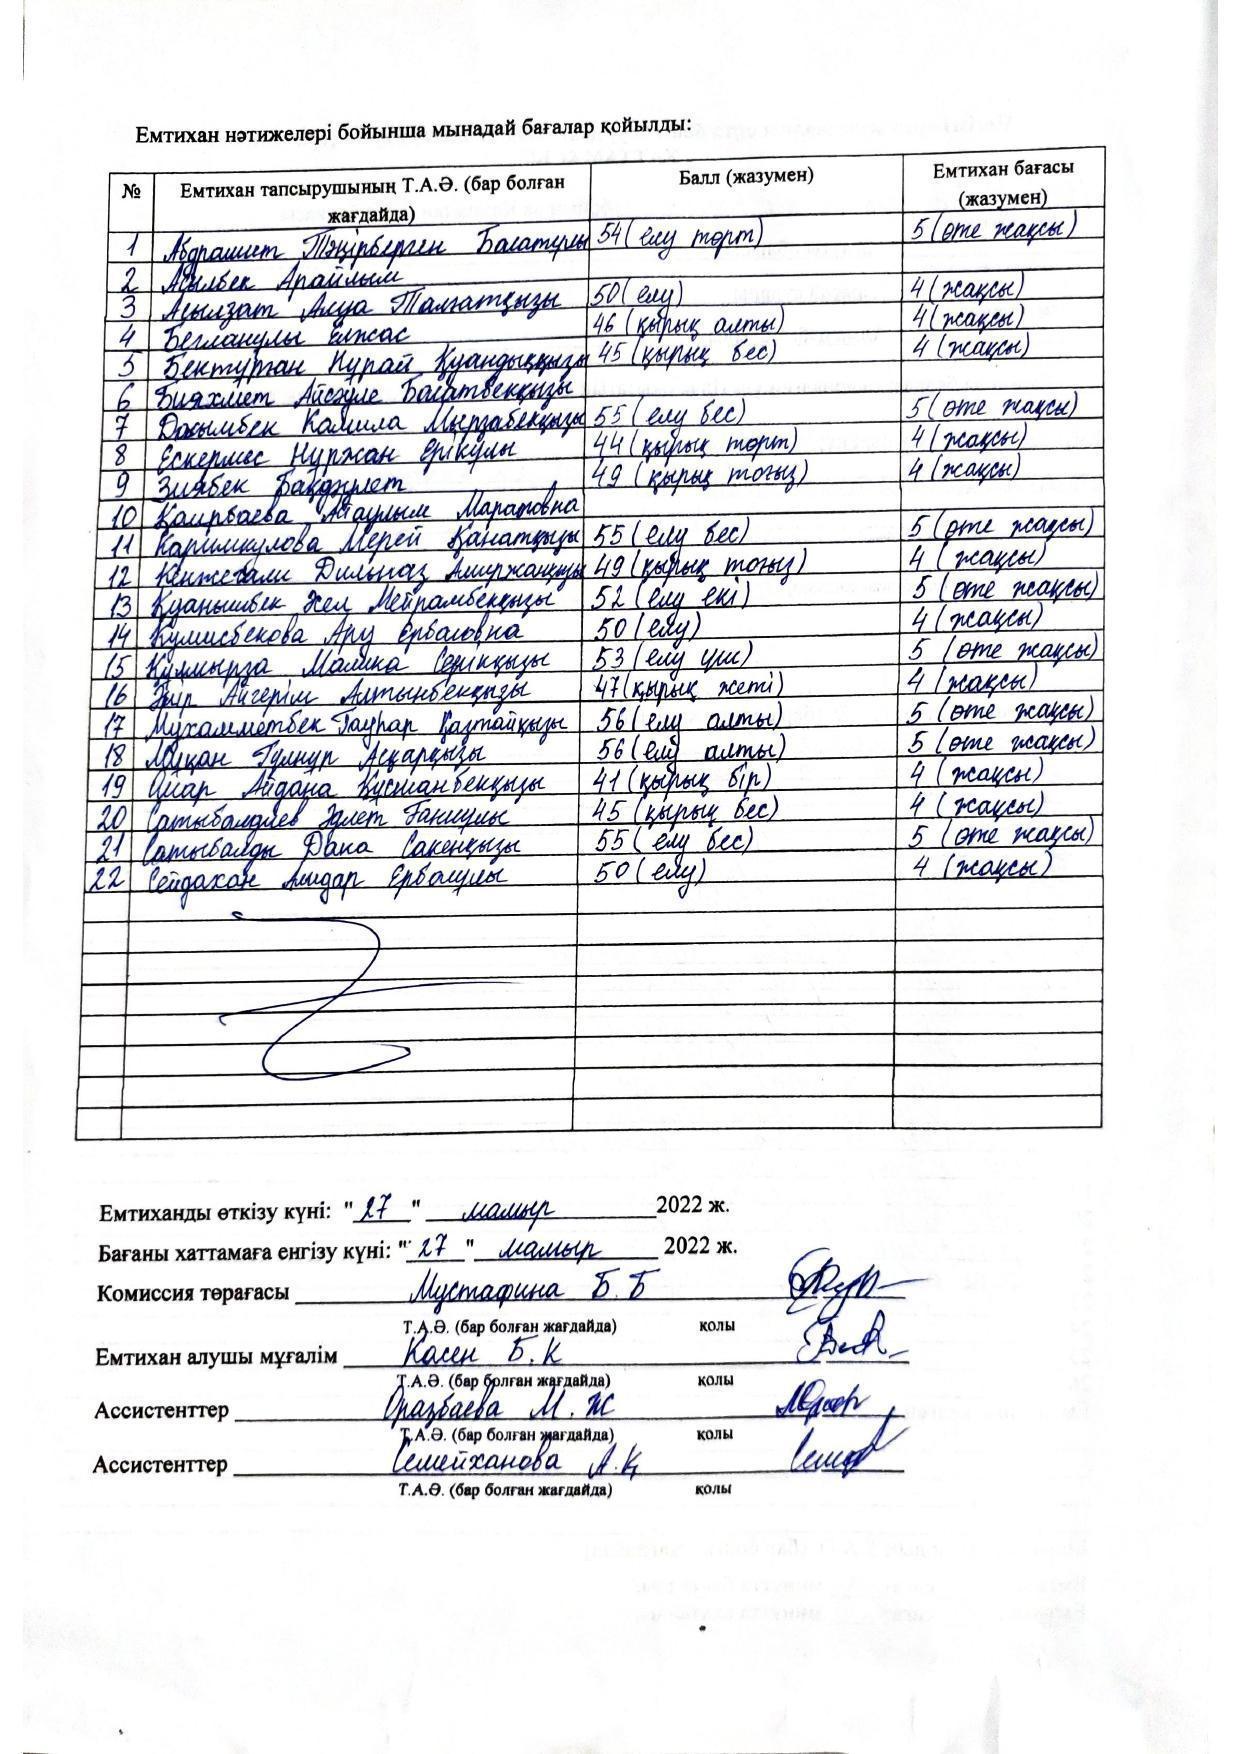 Емтихан нәтижелері бойынша мынадай бағалар қойылды:
№ Емтихан тапсырушының Т.А.Ә. (бар болған жағдайда) Балл (жазумен) Емтихан бағасы (жазумен)
1 Абдрашит Тәңірберген Бағатұлы 54 (елу төрт) 5 (өте жақсы)
2 Асылбек Арайлым
3 Асылзат Алуа Талғатқызы 50 (елу) 4 (жақсы)
4 Бегланұлы Елжас 46 (қырық алты) 4 (жақсы)
5 Бектұрған Нұрай Қуандыққызы 45 (қырық бес) 4 (жақсы)
6 Бияхмет Айсәуле
7 Досымбек Камила Мырзабекқызы 55 (елу бес) 5 (өте жақсы)
8 Ескермес Нұржан Ерікұлы 44 (қырық төрт) 4 (жақсы)
9 Зиябек Бақдәулет 49 (қырық тоғыз) 4 (жақсы)
10 Қаирбаева Айаулым Маратовна
11 Каримкулова Мерей Қанатқызы 55 (елу бес) 5 (өте жақсы)
12 Кенжеғали Дильназ 49 (қырық тоғыз) 4 (жақсы)
13 Қуанышбек Әсел Мейрамбекқызы 52 (елу екі) 5 (өте жақсы)
14 Кумисбекова Ару Ерболовна 50 (елу) 4 (жақсы)
15 Құлмырза Малика Серікқызы 53 (елу үш) 5 (өте жақсы)
16 Айгерім Алтынбекқызы 47 (қырық жеті) 4 (жақсы)
17 Мұхамметбек Гауһар Қазтайқызы 56 (елу алты) 5 (өте жақсы)
18 Мұқан Гүлнұр Асқарқызы 56 (елу алты) 5 (өте жақсы)
19 Омар Айдана Құсманбекқызы 41 (қырық бір) 4 (жақсы)
20 Сатыбалдиев Әділет Ғаниұлы 45 (қырық бес) 4 (жақсы)
21 Сатыбалды Дана Сакенқызы 55 (елу бес) 5 (өте жақсы)
22 Сейдахан Алидар Ерболұлы 50 (елу) 4 (жақсы)
Емтиханды өткізу күні: "27" мамыр 2022 ж.
Бағаны хаттамаға енгізу күні: "27" мамыр 2022 ж.
Комиссия төрағасы Мустафина Б.Б
Т.А.Ә. (бар болған жағдайда) қолы
Емтихан алушы мұғалім Касен Б.К
Т.А.Ә. (бар болған жағдайда) қолы
Ассистенттер Оразбаева М.Ж
Т.А.Ә. (бар болған жағдайда) қолы
Ассистенттер Семейханова А.Қ
Т.А.Ә. (бар болған жағдайда) қолы